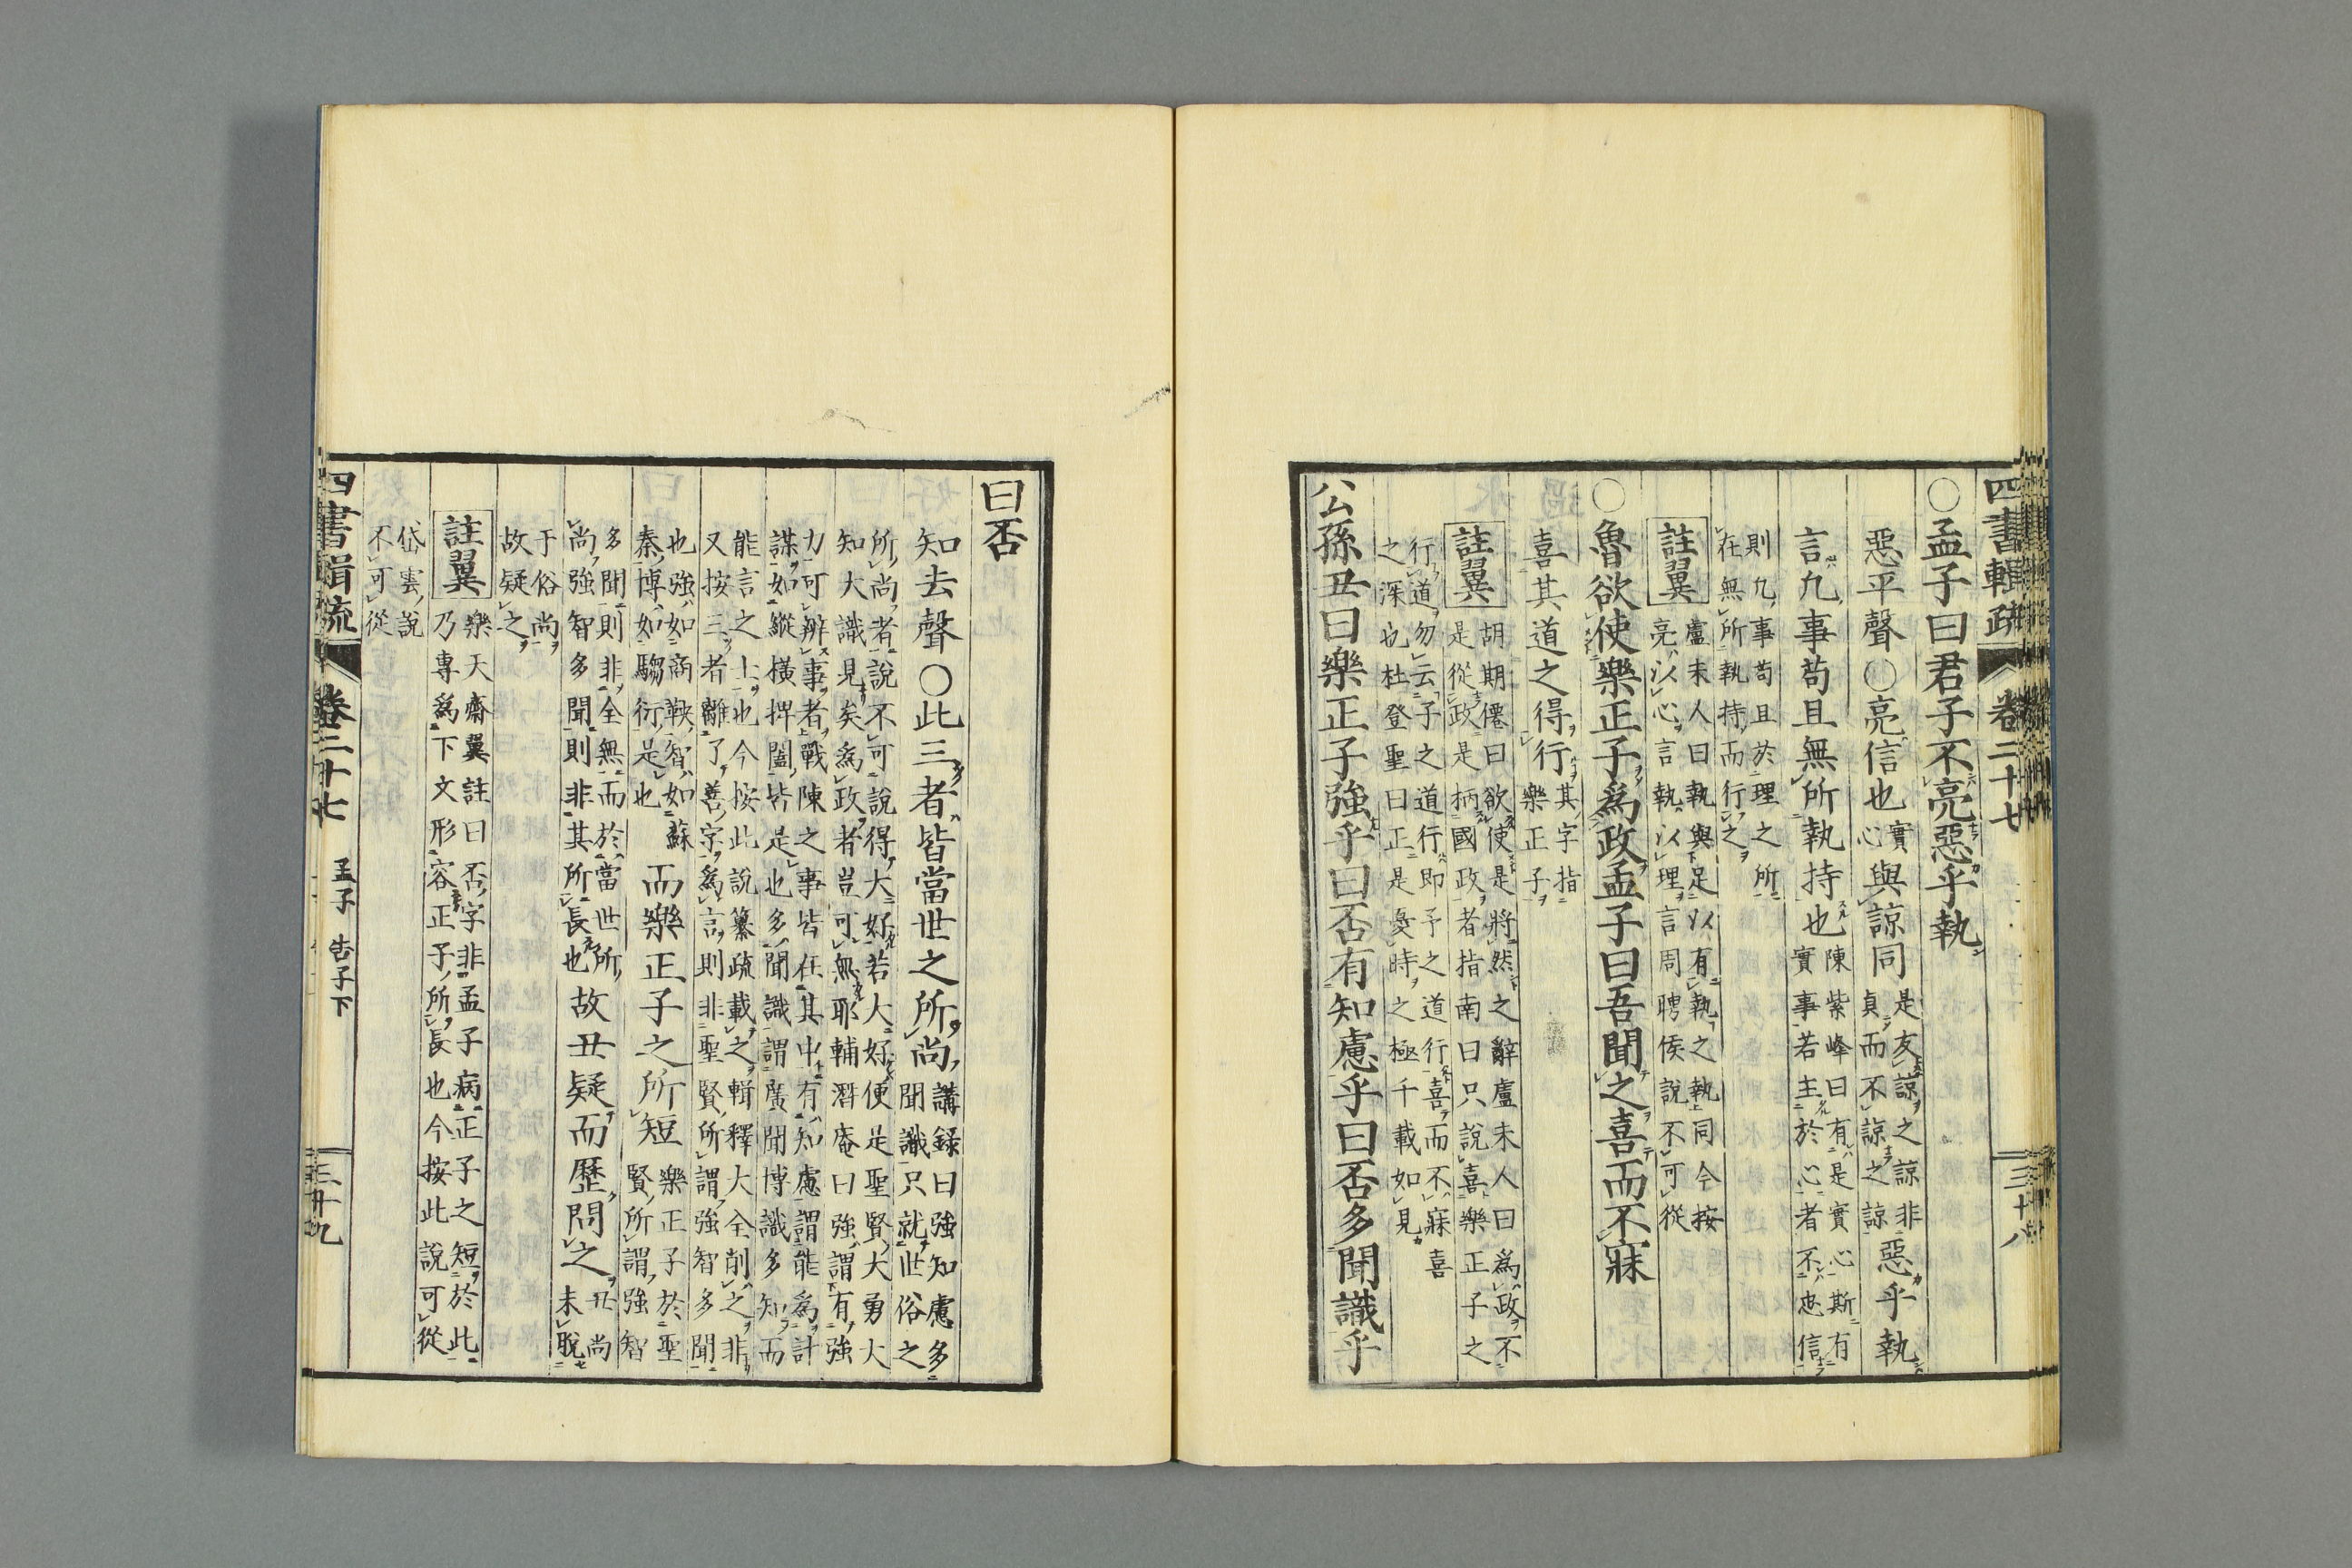 四書輯疏 卷二十七 三十八
○孟子曰君子不亮惡乎執
惡平聲○亮信也實心與諒同是友諒之諒非貞而不諒之諒惡乎執
言凡事苟且無所執持也陳紫峰曰有是實心斯有實事若主於心者不忠信
則凡事苟且於理之所在無所執持而行之
註翼盧未人曰執與足以有執之執同今按亮以心言執以理言周聘侯說不可從
○魯欲使樂正子爲政孟子曰吾聞之喜而不寐
喜其道之得行其字指樂正子
註翼胡期僊曰欲使是將然之辭盧未人曰爲政不是從政是柄國政者指南曰只說喜樂正子之
行道勿云子之道行即予之道行喜而不寐喜之深也杜登聖曰正是憂時之極千載如見
公孫丑曰樂正子強乎曰否有知慮乎曰否多聞識乎
曰否
知去聲○此三者皆當世之所尚講録曰強知慮多聞識只就世俗之
所尚者說不可說得大好若大好便是聖賢大勇大知大識見矣爲政者豈可無耶輔潛庵曰強謂有強
力可辨事者戰陳之事皆在其中有知慮謂能爲計謀如縱橫捭闔皆是也多聞識謂廣聞博識多知而
能言之士也今按此說纂疏載之輯釋大全削之非又按三者離了善字爲言則非聖賢所謂強智多聞
也強如商鞅智如蘇秦博如騶衍是也而樂正子之所短樂正子於聖賢所謂強智
多聞則非全無而於當世所尚強智多聞則非其所長也故丑疑而歷問之丑尚未脫
于俗尚故疑之
註翼樂天齋翼註曰否字非孟子病正子之短於此乃專爲下文形容正子所長也今按此說可從
岱雲說不可從
四書輯疏 卷二十七 孟子 告子下 三十九